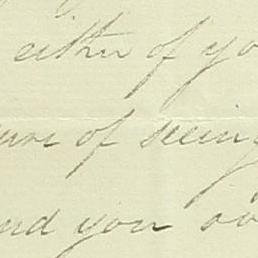 either of yo
ure of seeing
nd you so